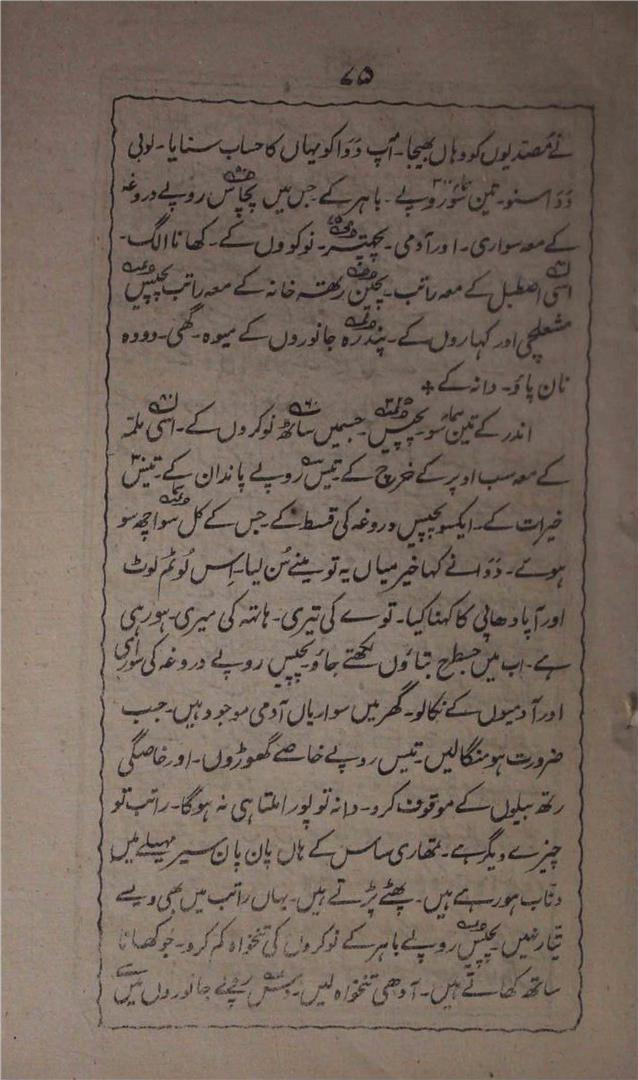 ۷۵
نے مُصَدیوں کو وہاں بھیجا۔ آپ دَوَا کو یہاں کا حساب سنایا۔ لو بی
دَدَا سنو۔ تین سَو روپے۔ باہر کے جس میں پچاس روپے دروغہ
کے معہ سواری۔ اور آدمی۔ پچھتر۔ نوکووں کے۔ کھانا الگ۔
اسی اصطبل کے معہ راتب۔ پچپن رتھہ خانہ کے معہ راتب پچیس
مشعلچی اور کہاروں کے۔ پندرہ جانوروں کے میوہ۔ گھی۔ دودہ
نان پاؤ۔ دانہ کے +
اندر کے تین سو پچیس۔ جسمیں ساٹھ نوکروں کے۔ اسی
کے معہ سب اوپر کے خرچ کے تیس روپے پاندان کے۔ تیس
خیرات کے۔ ایکسو پچیس دروغہ کی قسط کے جس کے کل سوا چھ سو
ہوئے۔ دَوَا نے کہا خیر میاں یہ تو مینے سُن لیا۔ اِس لُوٹم لوٹ
اور آپا دھاپی کا کہنا کیا۔ توے کی تیری۔ ہاتہ کی میری۔ ہو رہی
ہے۔ اب میں جسطرح بتاؤں لکھتے جاؤ پچیس روپے دروغہ کی سواری
اور آدمیوں کے نکالو۔ گھر میں سواریاں آدمی موجود ہیں۔ جب
ضرورت ہو منگالیں۔ تیس روپے خاصے گھوڑوں۔ اور خاصگی
رتھ بیلوں کے موقوف کرو۔ دانہ تو پورا ملتا ہی نہ ہوگا۔ راتب تو
چیزے دیگر ہے۔ تمھاری ساس کے ہاں پان پان سیر مہیلے میں
دبّاب ہو رہے ہیں۔ پھٹے پڑتے ہیں۔ یہاں راتب میں بھی ویسے
تیّار نہیں۔ پچیس روپے باہر کے نوکروں کی تنخواہ کم کرو۔ جو کھانا
ساتھ کھاتے ہیں۔ آدھی تنخواہ لیں۔ روپے جانوروں میں سے